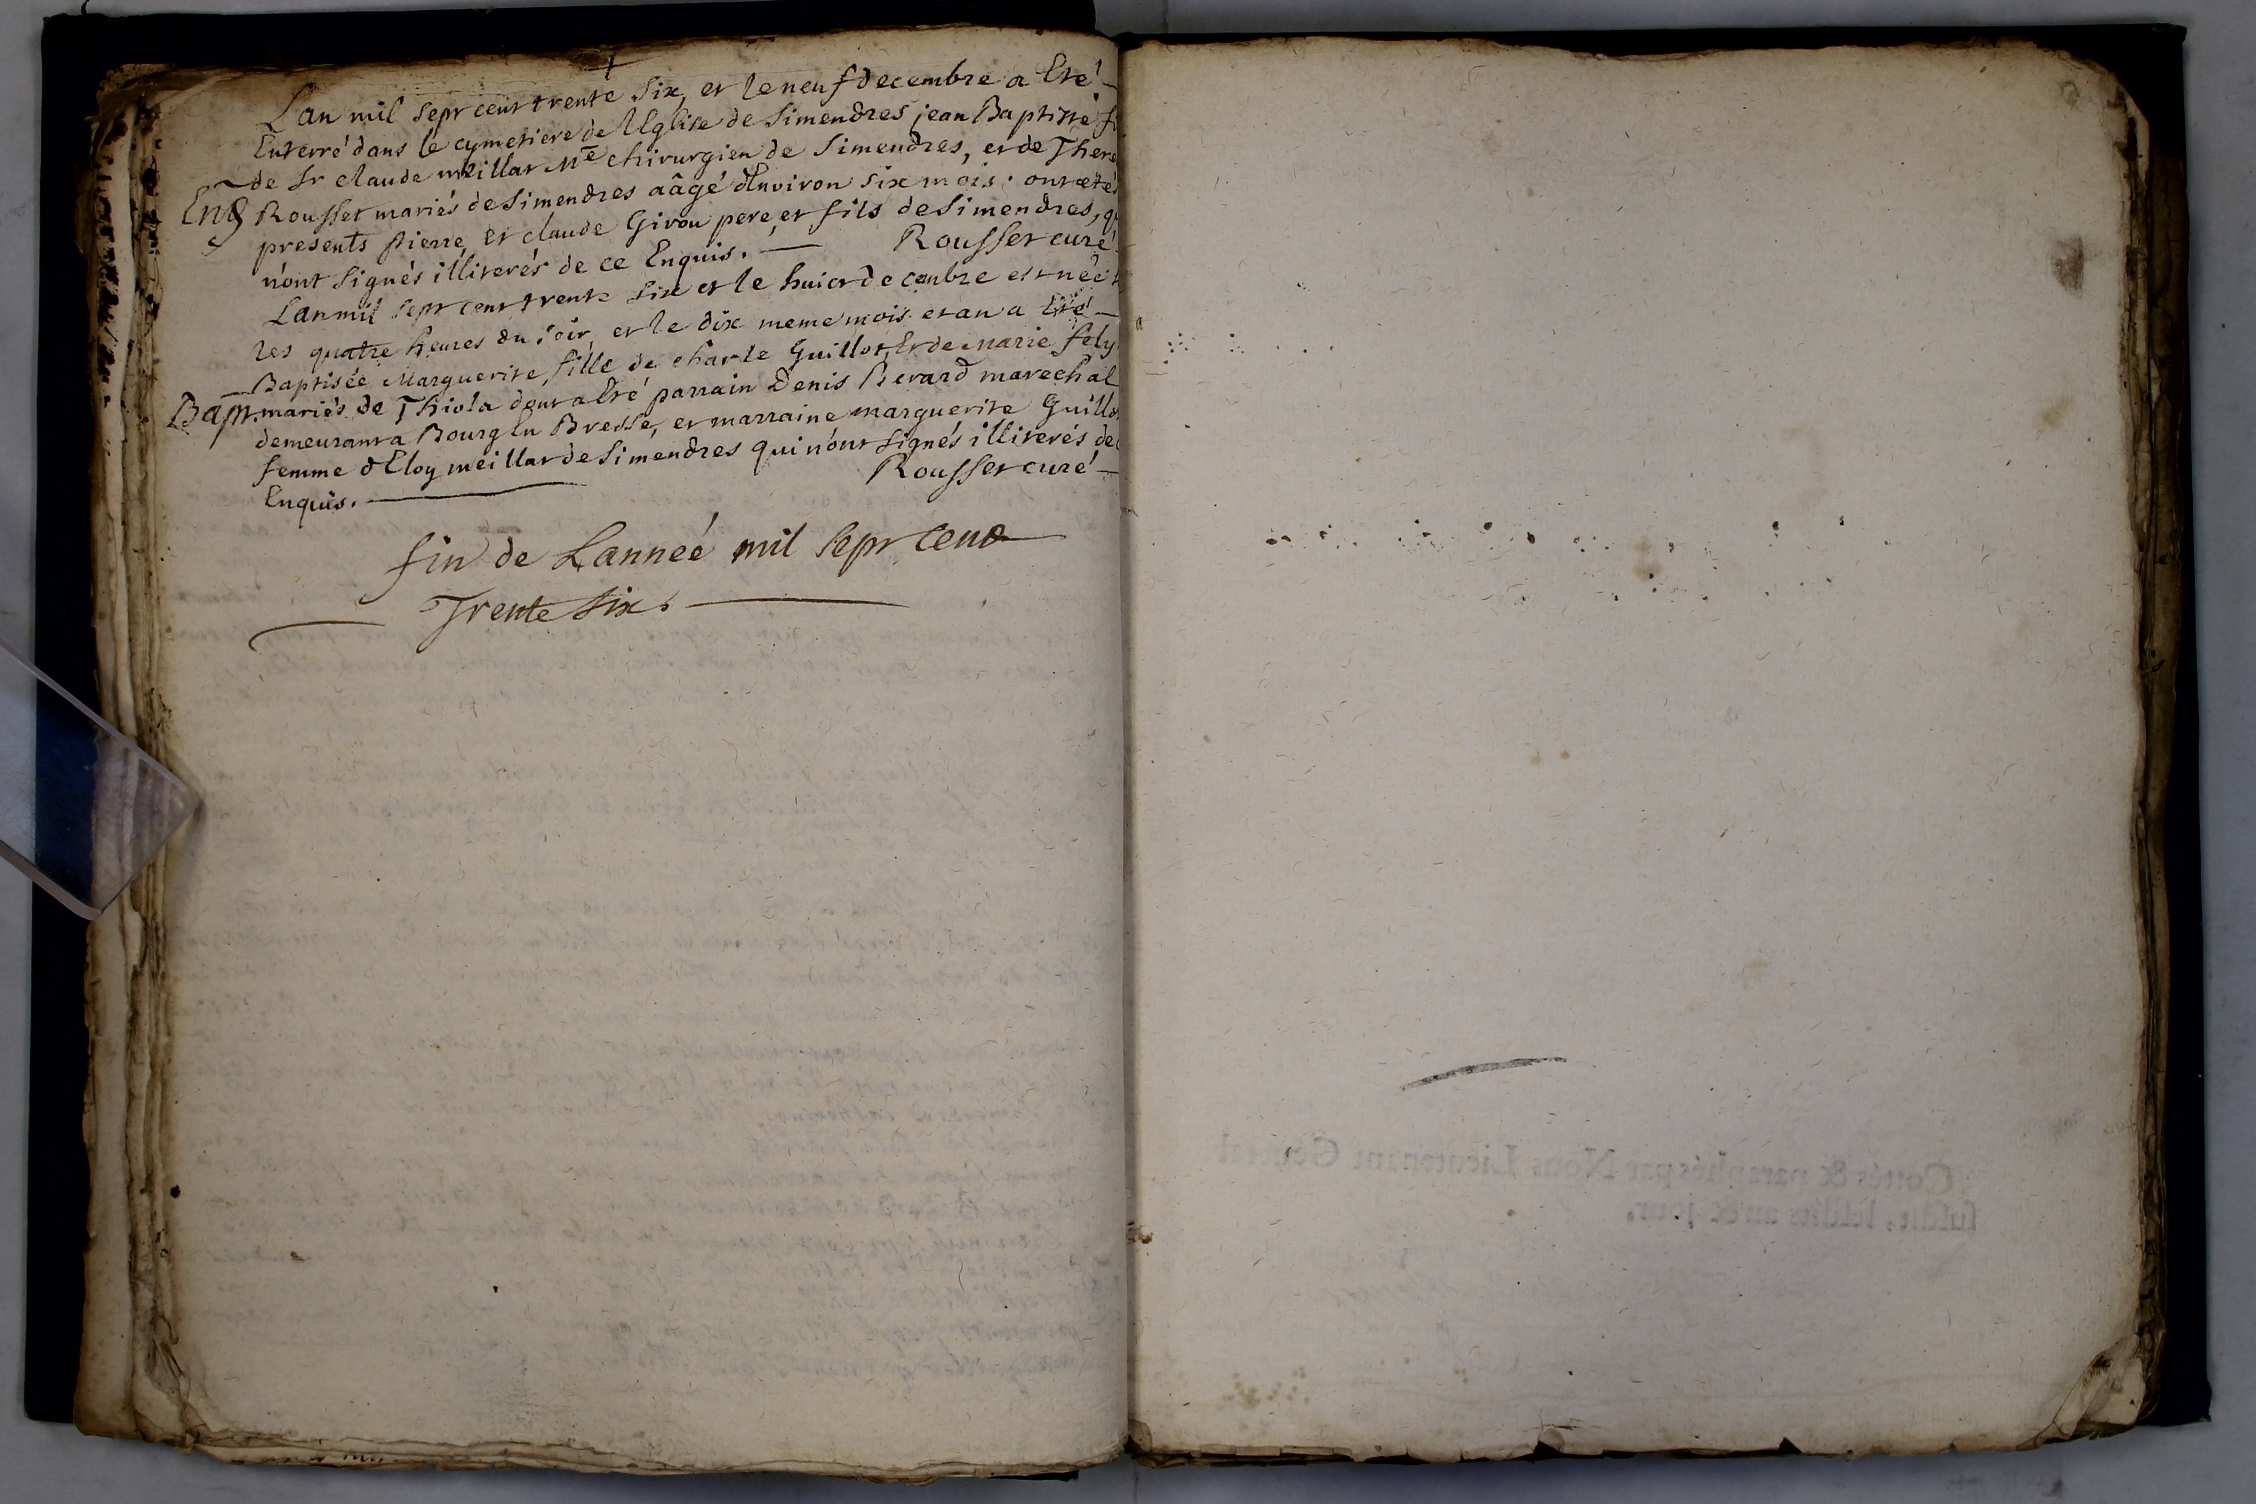 L'an mil sept cent trente six, et le neuf decembre a Eté
Enterré dans le cymetiere de l'Eglise de Simendres jean Baptiste
de Sr claude meillar Me chirurgien de Simendres, et de
Ent Rousset mariés de Simendres aâgé d'Environ six mois. ont étés
presents pierre, Et claude Girou pere, et fils de Simendres,
n'ont signés illiterés de ce Enquis. Rousset curé
L'an mil sept cent trente six et le huict decembre est née
les quatre heures du soir, et le dix meme mois et an a Eté
Baptisée Marguerite, fille de charle Guillot, Et de Marie fely
Bapt. mariés de Thiola dont a Eté parrain Denis Berard marechal
demeurant a Bourg En Bresse, et marraine marguerite
femme d'Eloy meillar de Simendres qui n'ont signés illiterés de
Enquis. Rousset curé
fin de L'anneé mil sept cent
Trente six.
Cottés & paraphés par Nous Lieutenant General
susdit, lesdits an & jour.